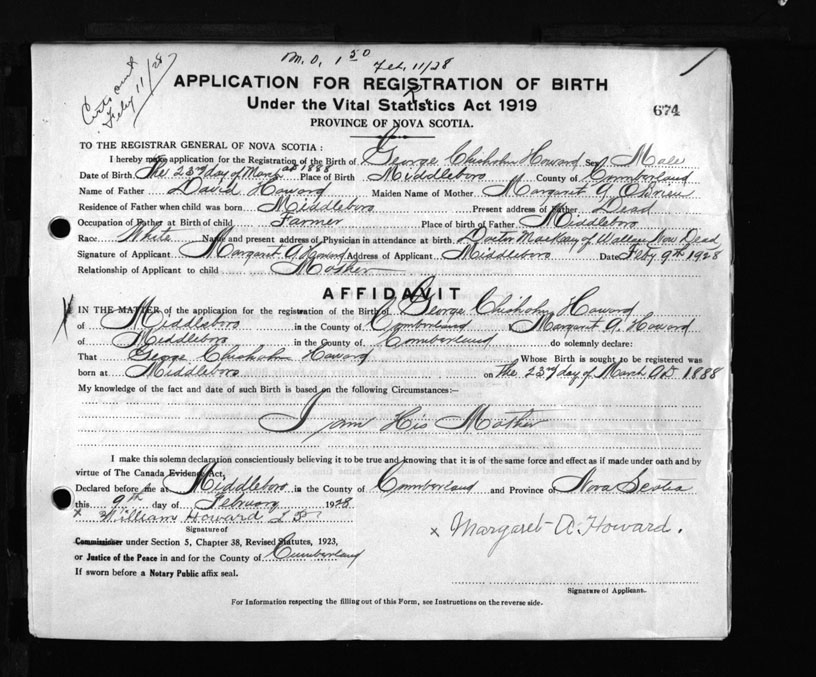 M.O. 1 50 Feb. 11/28
Certs out
Feby 11/28
APPLICATION FOR REGISTRATION OF BIRTH
Under the Vital Statistics Act 1919
674
PROVINCE OF NOVA SCOTIA.
TO THE REGISTRAR GENERAL OF NOVA SCOTIA :
I hereby make application for the Registration of the Birth of George Chisholm Howard Sex Male
Date of Birth The 23rd day of March AD 1888 Place of Birth Middleboro County of Cumberland
Name of Father David Howard Maiden Name of Mother Margaret A. O'Brien
Residence of Father when child was born Middleboro Present address of Father Dead
Occupation of Father at Birth of child Farmer Place of birth of Father Middleboro
Race White Name and present address of Physician in attendance at birth Doctor MacKay of Wallace Now Dead
Signature of Applicant Margaret A Howard Address of Applicant Middleboro Date Feby 9th 1928
Relationship of Applicant to child Mother
AFFIDAVIT
IN THE MATTER of the application for the registration of the Birth of George Chisholm Howard
of Middleboro in the County of Cumberland Margaret A. Howard
of Middleboro in the County of Cumberland do solemnly declare:
That George Chisholm Howard Whose Birth is sought to be registered was
born at Middleboro on The 23rd day of March AD. 1888
My knowledge of the fact and date of such Birth is based on the following Circumstances:—
I am His Mother
I make this solemn declaration conscientiously believing it to be true and knowing that it is of the same force and effect as if made under oath and by
virtue of The Canada Evidence Act,
Declared before me at Middleboro in the County of Cumberland and Province of Nova Scotia
this 9th day of February 1928
x William Howard J P
Signature of
x Margaret A. Howard.
Commissioner under Section 5, Chapter 38, Revised Statutes, 1923,
or Justice of the Peace in and for the County of Cumberland
If sworn before a Notary Public affix seal.
Signature of Applicant.
For Information respecting the filling out of this Form, see Instructions on the reverse side.